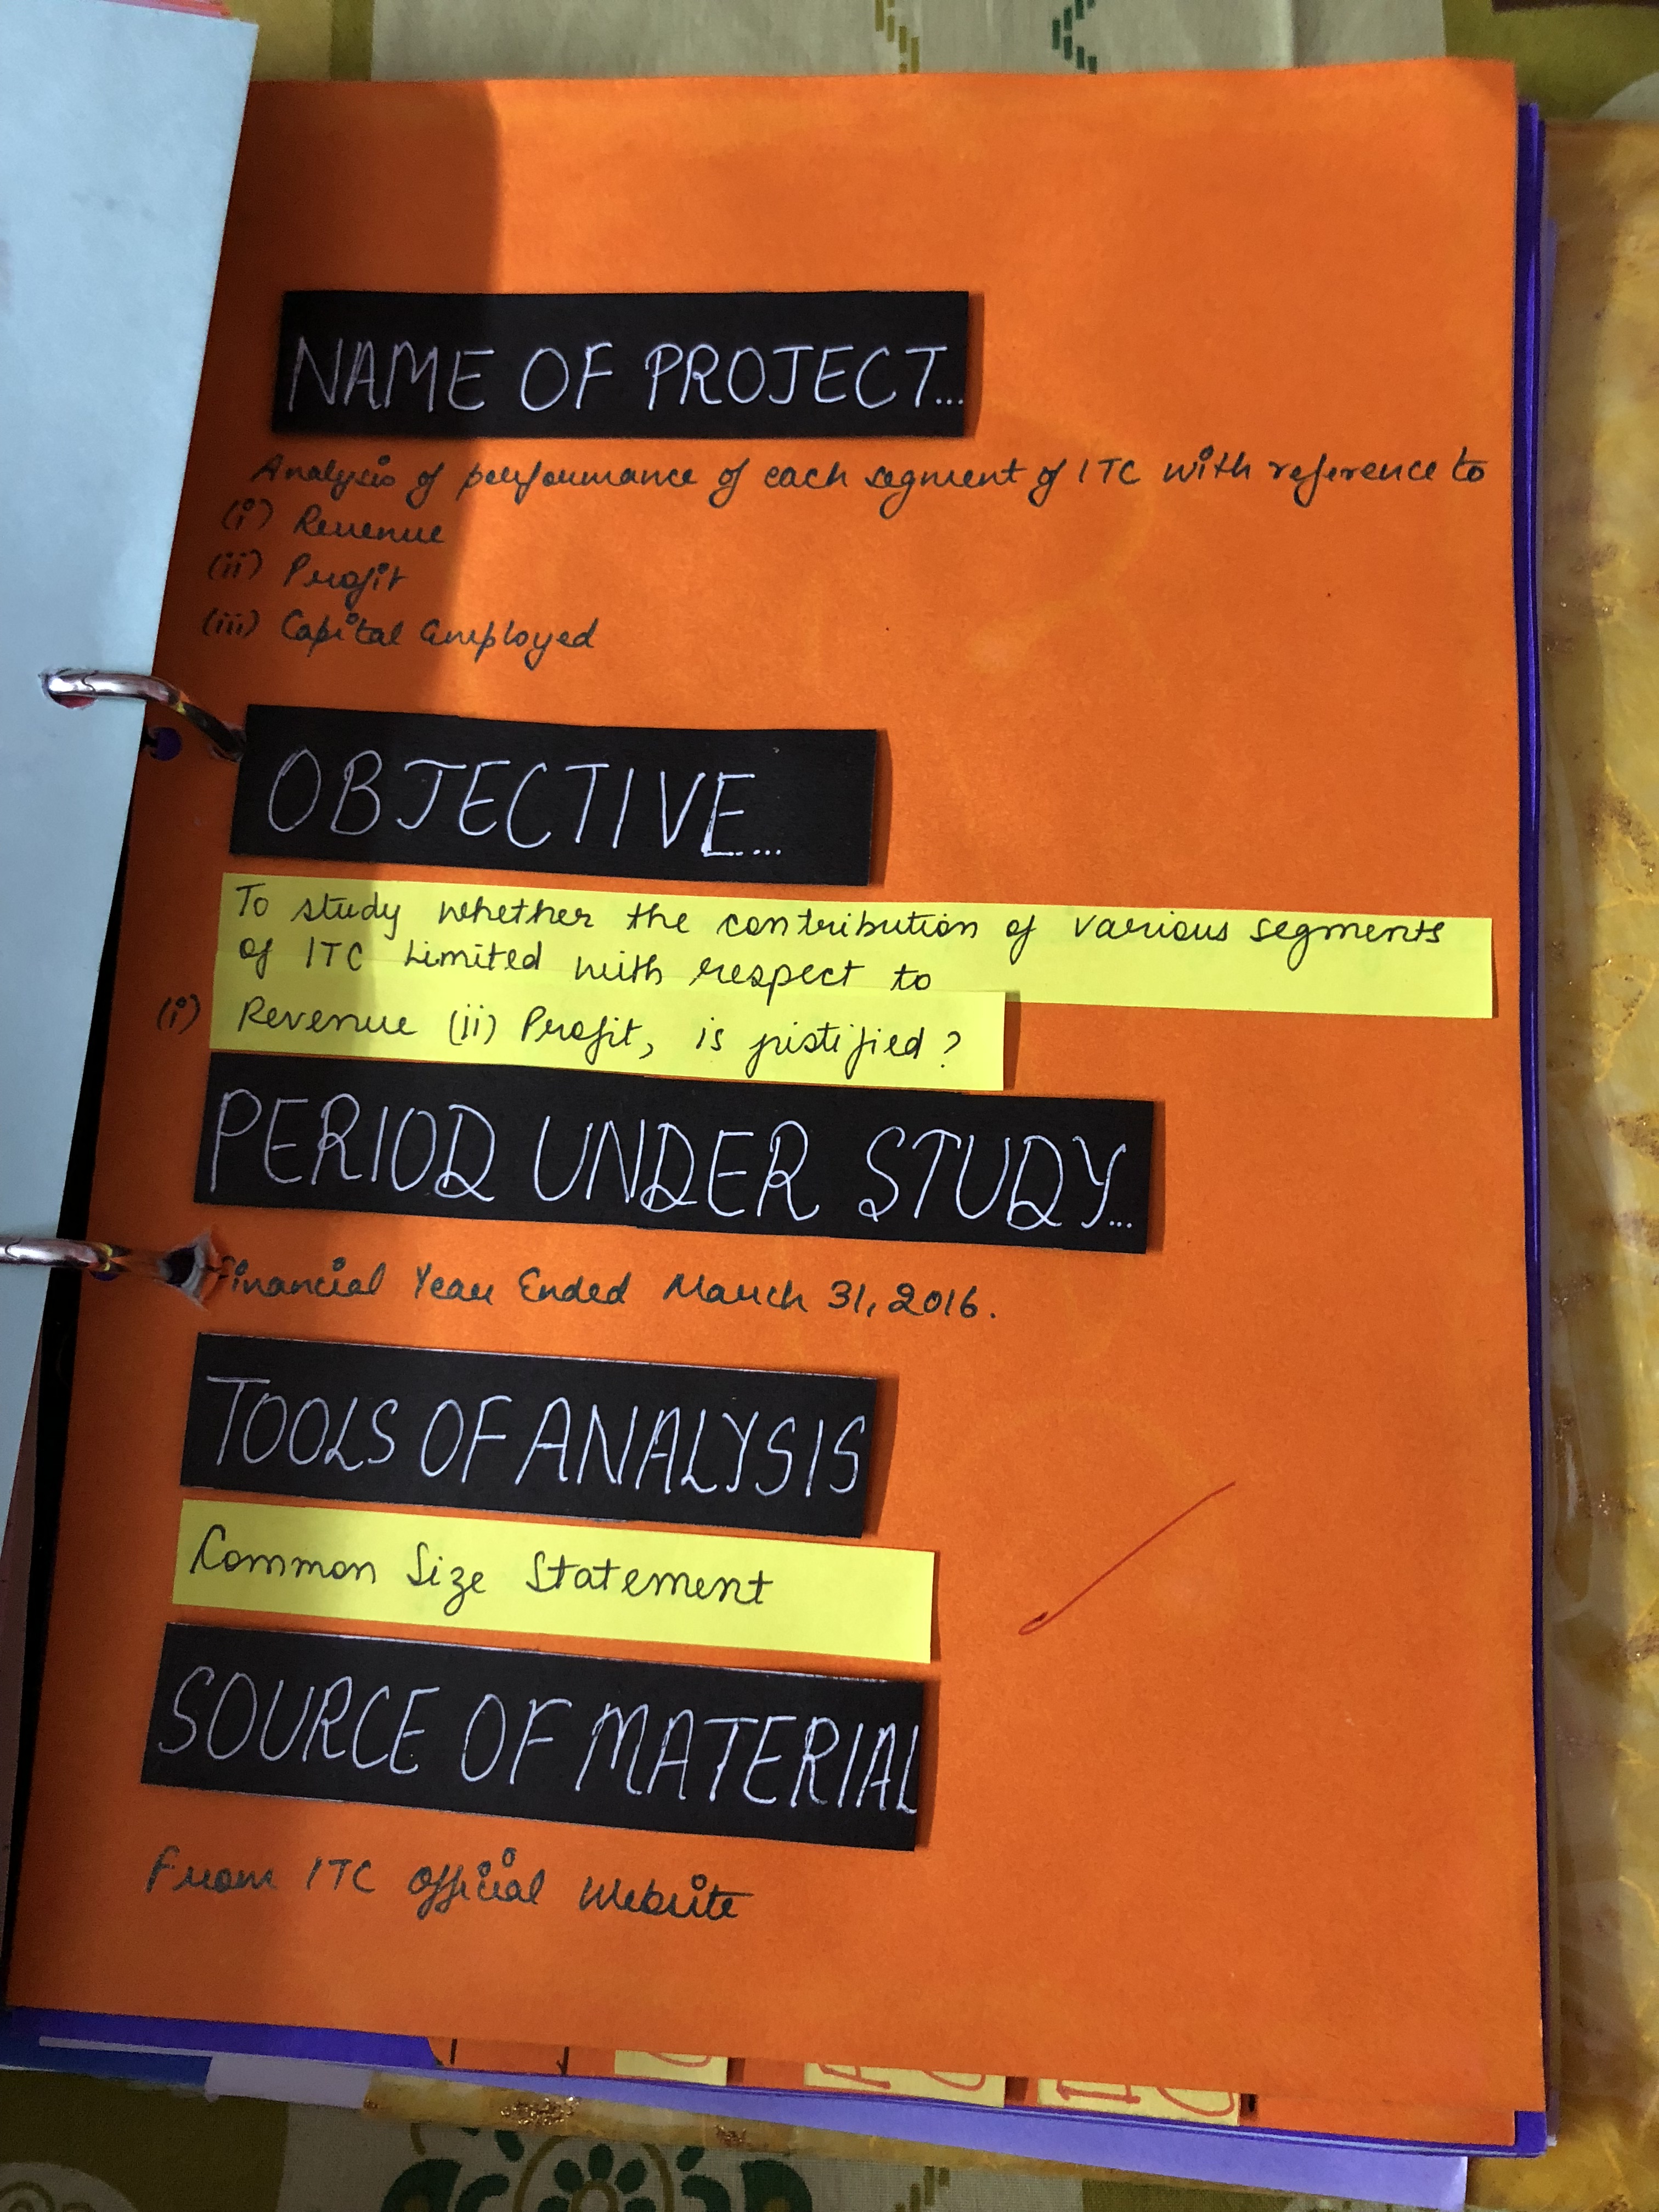 NAME OF PROJECT...
Analysis of performance of each segment of ITC with reference to
(i) Revenue
(ii) Profit
(iii) Capital Employed
OBJECTIVE...
To study whether the contribution of various segments
of ITC Limited with respect to
(i) Revenue (ii) Profit, is justified?
PERIOD UNDER STUDY...
Financial Year Ended March 31, 2016.
TOOLS OF ANALYSIS
Common Size Statement
SOURCE OF MATERIAL
From ITC official Website